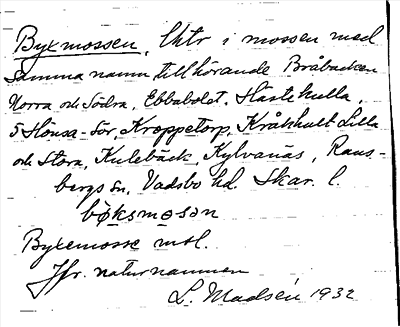 Bykmossen, Uktr i mossen med
samma namn tillhörande Bråbacken
Norra och Södra, Ebbabolet, Hästekulla,
5 Hönsa-Sör, Kroppetorp, Kråkhult Lilla
och Stora, Kulebäck, Kylvanäs, Rans-
bergs sn, Vadsbo hd. Skar. l.
bøksmosən
Bykemosse mtl.
Jfr. naturnamnen
L. Madsén 1932